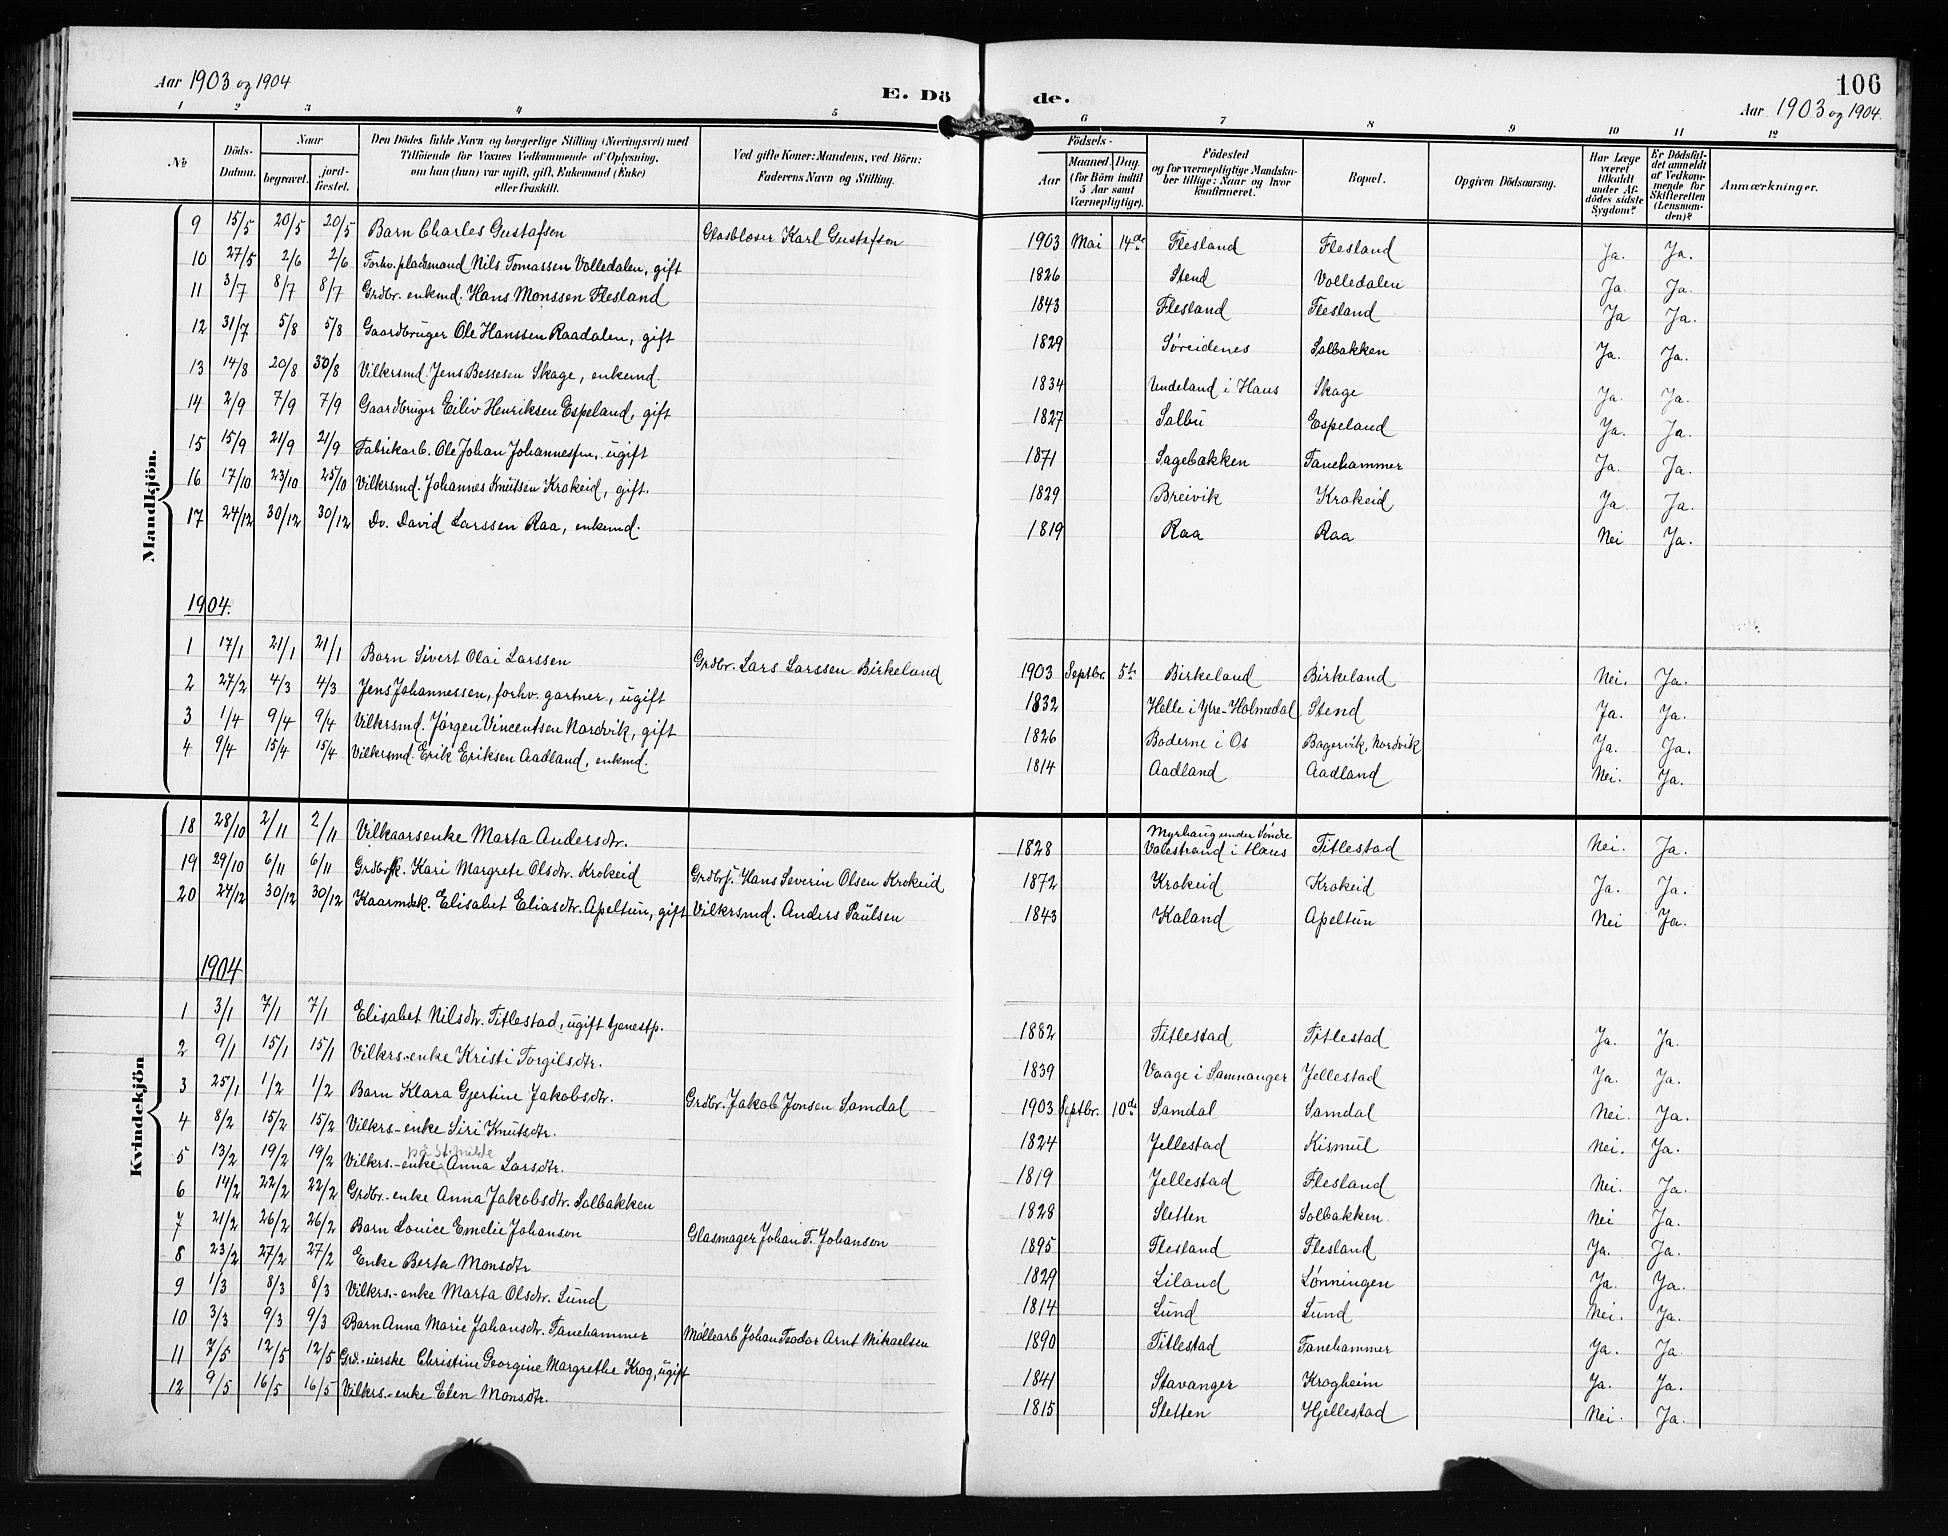 Aar 1903 og 1904
E. Dö de.
106
Aar 1903 og 1904.
1 2 3 4 5 6 7 8 9 10 11 12
No
Döds-Datum.
Naar begravet. jord-fæstet.
Den Dödes fulde Navn og borgerlige Stilling (Næringsvei) med Tilföiende for Voxnes Vedkommende af Oplysning. om han (hun) var ugift, gift, Enkemand (Enke) eller fraskilt.
Ved gifte Koner: Mandens, ved Börn: Faderens Navn og Stilling.
Födsels-
Aar Maaned. Dag. (for Börn indtil 5 Aar samt Værnepligtige).
Födested og for værnepligtige Mandska-ber tillige: Naar og hvor konfirmeret.
Bopæl.
Opgiven Dödsaarsag.
Har Læge været tilkaldt under Af-dödes sidste Sygdom?
Er Dödsfal-det anmeldt af Vedkom-mende for Skifteretten (Lensman-den)?
Anmærkninger.
Mandkjön.
9 15/5 20/5 20/5 Barn Charles Gustafsen Glasblaser Karl Gustafsen 1903 Mai 14de Flesland Flesland Ja. Ja.
10 27/5 2/6 2/6 Forhv. pladsmand Nils Tomassen Volledalen, gift 1826 Stend Volledalen Ja. Ja.
11 3/7 8/7 8/7 Grdbr. enkmd. Hans Monssen Flesland 1843 Flesland Flesland Ja Ja.
12 31/7 5/8 5/8 Gaardbruger Ole Hanssen Raadalen, gift 1829 Søreidenes Solbakken Ja. Ja.
13 14/8 20/8 30/8 Vilkrsmd. Jens Bessesen Skage, enkemd. 1834 Undeland i Haus Skage Ja. Ja.
14 2/9 7/9 7/9 Gaardbruger Eiliv Henriksen Espeland, gift 1827 Salbu Espeland Ja. Ja.
15 15/9 21/9 21/9 Fabrikarb. Ole Johan Johannessen, ugift 1871 Sagebakken Fanehammer Ja. Ja.
16 17/10 23/10 25/10 Vilkrsmd. Johannes Knutsen Krokeid, gift. 1829 Breivik Krokeid Ja. Ja.
17 24/12 30/12 30/12 Do. David Larssen Raa, enkemd. 1819 Raa Raa Nei Ja.
1904.
1 17/1 21/1 21/1 Barn Sivert Olai Larssen Grdbr. Lars Larssen Birkeland 1903 Septbr. 5te Birkeland Birkeland Nei. Ja.
2 27/2 4/3 4/3 Jens Johannessen, forhv. gartner, ugift 1832 Helle i Ytre-Holmedal Stend Ja. Ja.
3 1/4 9/4 9/4 Vilkrsmd. Jørgen Vincentsen Nordvik, gift 1826 Boderne i Os Bagervik, Nordvik Ja. Ja.
4 9/4 15/4 15/4 Vilkrsmd. Erik Eriksen Aadland, enkmd. 1814 Aadland Aadland Nei. Ja.
Kvindekjön
18 28/10 2/11 2/11 Vilkaarsenke Marta Andersdtr. 1828 Myrhaug under Søndre Valestrand i Haus Titlestad Nei. Ja.
19 29/10 6/11 6/11 Grdbrsk. Kari Margrete Olsdtr. Krokeid Grdbr. Hans Severin Olsen Krokeid 1872 Krokeid Krokeid Ja. Ja.
20 24/12 30/12 30/12 Kaarmdsk. Elisabet Eliasdtr. Apeltun, gift Vilkrsmd. Anders Paulsen 1843 Kaland Apeltun Nei Ja.
1904
1 3/1 7/1 7/1 Elisabet Nilsdtr. Titlestad, ugift tjenestp. 1882 Titlestad Titlestad Ja. Ja.
2 9/1 15/1 15/1 Vilkrs-enke Kristi Torgilsdtr. 1839 Vaage i Samnanger Jellestad Ja. Ja.
3 25/1 1/2 1/2 Barn Klara Gjertine Jakobsdtr. Grdbr. Jakob Jonsen Samdal 1903 Septbr. 10de Samdal Samdal Nei. Ja.
4 8/2 15/2 15/2 Vilkrs-enke Siri Knutsdtr. 1824 Jellestad Kismul Nei. Ja.
på St. Milde
5 13/2 19/2 19/2 Vilkrs.-enke Anna Larsdtr. 1819 Jellestad Flesland Nei. Ja.
6 14/2 22/2 22/2 Grdbr.-enke Anna Jakobsdtr. Solbakken 1828 Sletten Solbakken Nei Ja.
7 21/2 26/2 26/2 Barn Louice Emelie Johanson Glasmager Johan F. Johanson 1895 Flesland Flesland Ja. Ja.
8 23/2 27/2 27/2 Enke Berta Monsdtr 1829 Liland Lønningen Ja. Ja.
9 1/3 8/3 8/3 Vilkrs.-enke Marta Olsdtr. Lund 1814 Lund Lund Nei. Ja.
10 3/3 9/3 9/3 Barn Anna Marie Johansdtr. Fanehammer Møllearb Johan Teodor Arnt Mikaelsen 1890 Titlestad Fanehammer Ja. Ja.
11 7/5 12/5 12/5 Grd.-eierske Christine Georgine Margrethe Krog, ugift 1841 Stavanger Krogheim Ja. Ja.
12 9/5 16/5 16/5 Vilkrs.-enke Elen Monsdtr. 1815 Sletten Hjellestad Nei. Ja.